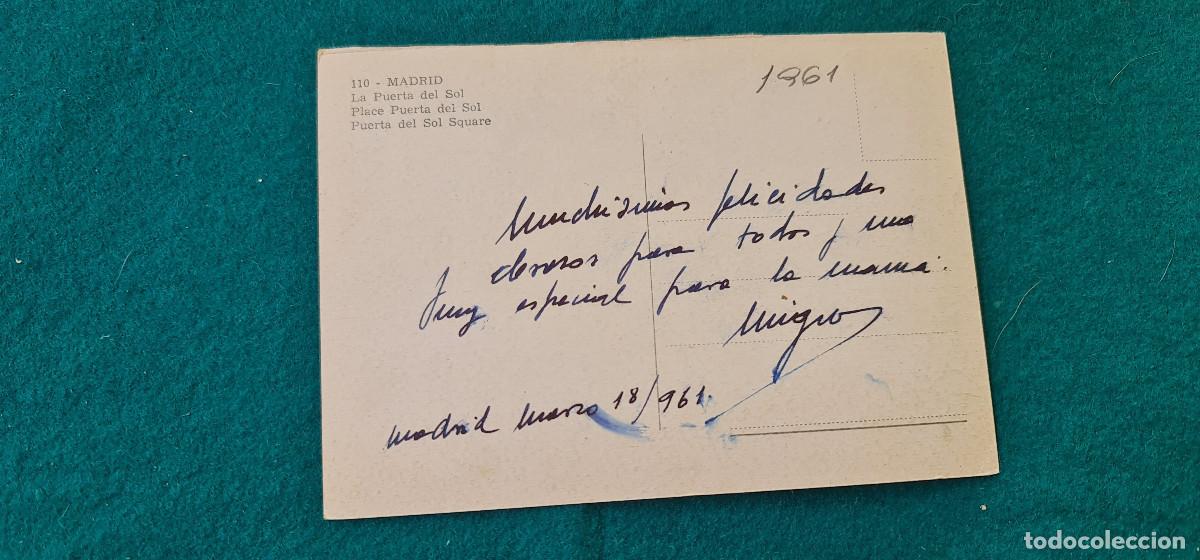 110 - MADRID
La Puerta del Sol
Place Puerta del Sol
Puerta del Sol Square
1961
Muchisimas felicidades
y abrazos para todos y uno
muy especial para la mama.
Madrid Marzo 18/961.
todocoleccion